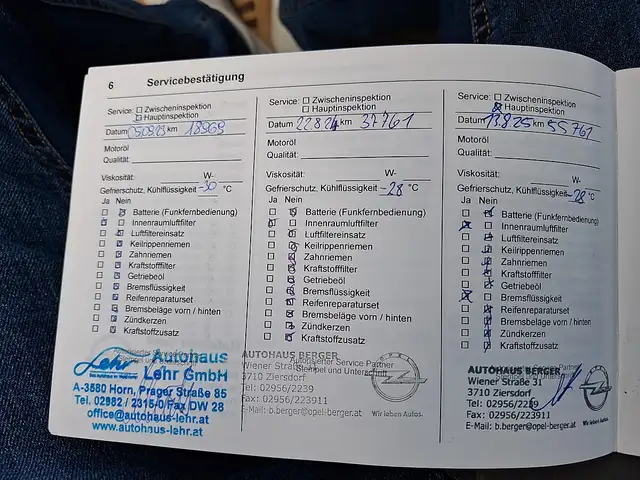 6 Servicebestätigung
Service: Zwischeninspektion
Hauptinspektion
Datum km 18969
Motoröl
Qualität:
Viskosität: W-
Gefrierschutz, Kühlflüssigkeit -30 °C
Ja Nein
Batterie (Funkfernbedienung)
Innenraumluftfilter
Luftfiltereinsatz
Keilrippenriemen
Zahnriemen
Kraftstofffilter
Getriebeöl
Bremsflüssigkeit
Reifenreparaturset
Bremsbeläge vorn / hinten
Zündkerzen
Kraftstoffzusatz
Autohaus
Lehr Lehr GmbH
A-3580 Horn, Prager Straße 85
Tel. 02982 / 2315-0/Fax DW 28
office@autohaus-lehr.at
www.autohaus-lehr.at
Service: Zwischeninspektion
Hauptinspektion
Datum 22.8.24 km 37761
Motoröl
Qualität:
Viskosität: W-
Gefrierschutz, Kühlflüssigkeit -28 °C
Ja Nein
Batterie (Funkfernbedienung)
Innenraumluftfilter
Luftfiltereinsatz
Keilrippenriemen
Zahnriemen
Kraftstofffilter
Getriebeöl
Bremsflüssigkeit
Reifenreparaturset
Bremsbeläge vorn / hinten
Zündkerzen
Kraftstoffzusatz
Autorisierter Service Partner
Stempel und Unterschrift
AUTOHAUS BERGER
Wiener Straße
3710 Ziersdorf
Tel: 02956/2239
Fax: 02956/223911
E-Mail: b.berger@opel-berger.at
OPEL
Wir leben Autos.
Service: Zwischeninspektion
Hauptinspektion
Datum 13.8.25 km 55761
Motoröl
Qualität:
Viskosität: W-
Gefrierschutz, Kühlflüssigkeit -28 °C
Ja Nein
Batterie (Funkfernbedienung)
Innenraumluftfilter
Luftfiltereinsatz
Keilrippenriemen
Zahnriemen
Kraftstofffilter
Getriebeöl
Bremsflüssigkeit
Reifenreparaturset
Bremsbeläge vorn / hinten
Zündkerzen
Kraftstoffzusatz
AUTOHAUS BERGER
Wiener Straße 31
3710 Ziersdorf
Tel: 02956/2239
Fax: 02956/223911
E-Mail: b.berger@opel-berger.at
OPEL
Wir leben Autos.